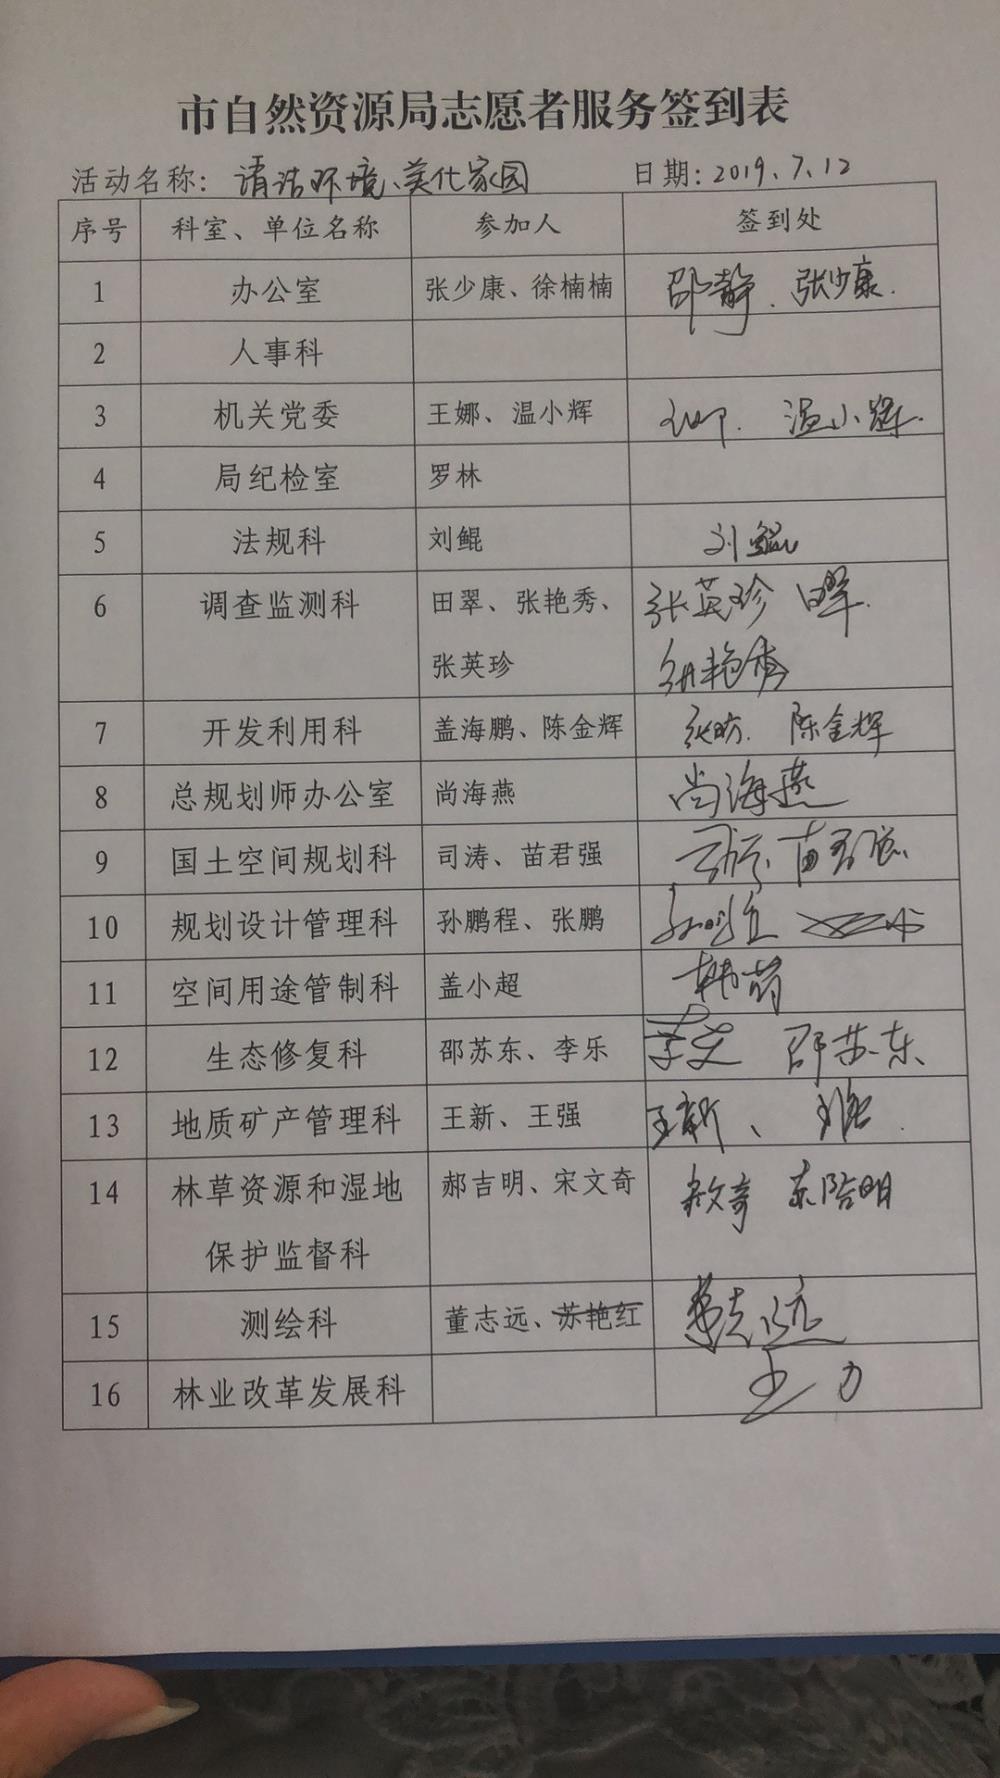 市自然资源局志愿者服务签到表
活动名称：清洁环境、美化家园 日期：2019.7.12
序号 科室、单位名称 参加人 签到处
1 办公室 张少康、徐楠楠 邵静.张少康.
2 人事科
3 机关党委 王娜、温小辉 王娜. 温小辉.
4 局纪检室 罗林
5 法规科 刘鲲 刘鲲
6 调查监测科 田翠、张艳秀、 张英珍 田翠.
张英珍 张艳秀
7 开发利用科 盖海鹏、陈金辉 陈金辉
8 总规划师办公室 尚海燕 尚海燕
9 国土空间规划科 司涛、苗君强 司涛、苗君强
10 规划设计管理科 孙鹏程、张鹏
11 空间用途管制科 盖小超 韩萌
12 生态修复科 邵苏东、李乐 邵苏东
13 地质矿产管理科 王新、王强 王新、王强.
14 林草资源和湿地 郝吉明、宋文奇
保护监督科
15 测绘科 董志远、苏艳红 董志远
16 林业改革发展科 王力